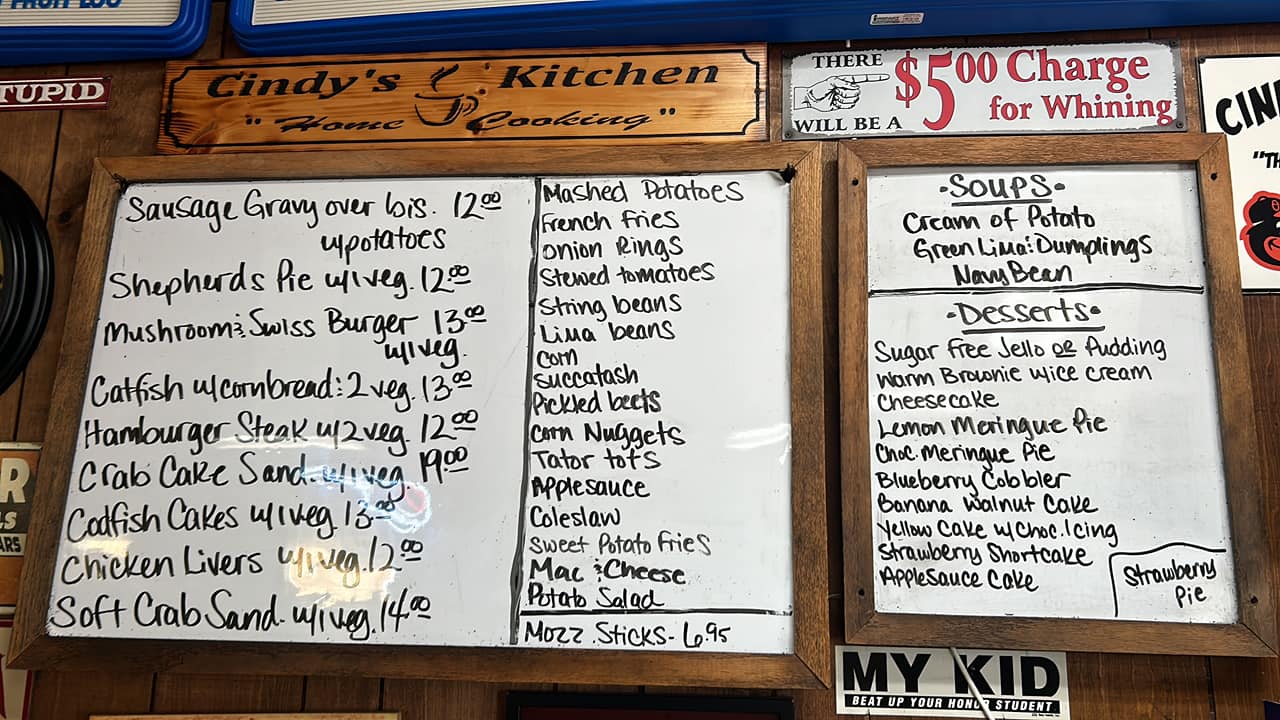 FRUIT LOO
TUPID
Cindy's Kitchen
"Home Cooking"
THERE
WILL BE A
$5.00 Charge
for Whining
CIN
"TH
Sausage Gravy over bis. 12.00
w/potatoes
Shepherds Pie w/1veg. 12.00
Mushroom & Swiss Burger 13.00
w/1veg.
Catfish w/cornbread & 2 veg. 13.00
Hamburger Steak w/2veg. 12.00
Crab Cake Sand. w/1veg. 19.00
Codfish Cakes w/1veg 13.00
Chicken Livers w/1veg. 12.00
Soft Crab Sand. w/1veg. 14.00
Mashed Potatoes
French fries
Onion Rings
Stewed tomatoes
String beans
Lima beans
Corn
Succatash
Pickled beets
Corn Nuggets
Tator tots
Applesauce
Coleslaw
Sweet Potato Fries
Mac & Cheese
Potato Salad
Mozz. Sticks - 6.95
•Soups•
Cream of Potato
Green Lima & Dumplings
Navy Bean
•Desserts•
Sugar Free Jello or Pudding
Warm Brownie w/ice cream
Cheesecake
Lemon Meringue Pie
Choc. Meringue Pie
Blueberry Cobbler
Banana Walnut Cake
Yellow Cake w/Choc. Icing
Strawberry Shortcake
Applesauce Cake
Strawberry
Pie
R
LS
ARS
MY KID
BEAT UP YOUR HONOR STUDENT